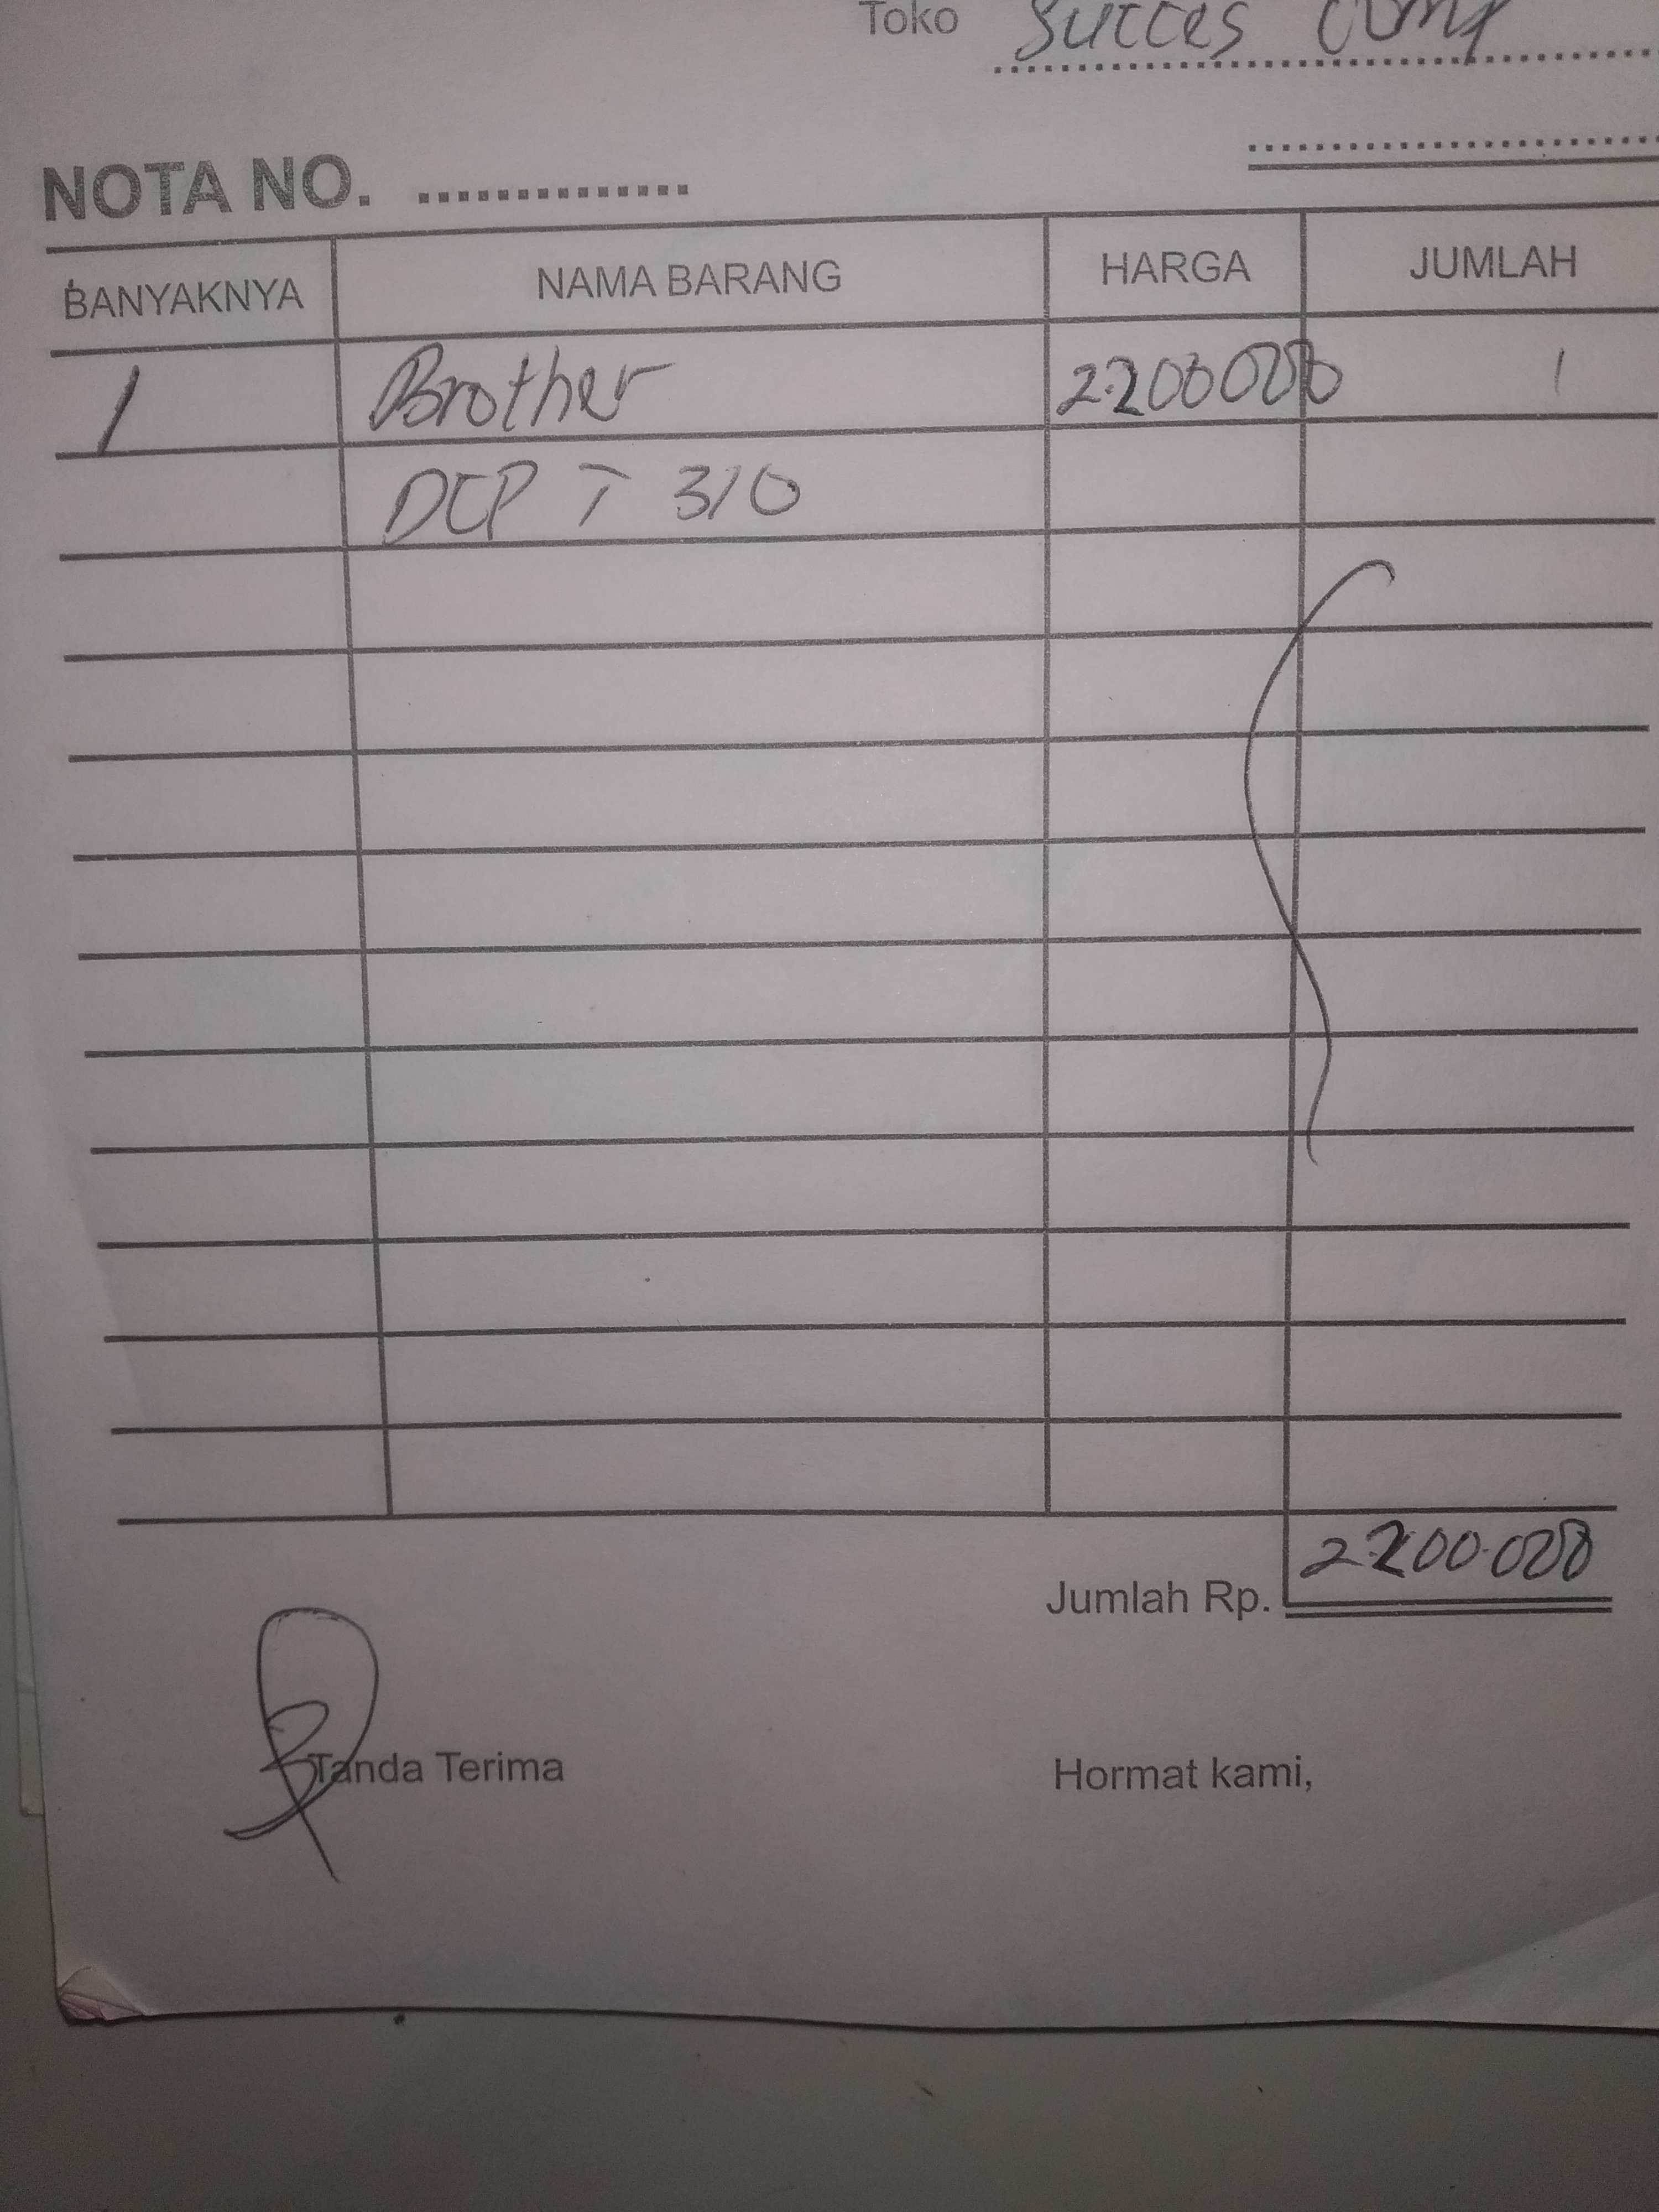 Toko Succes Comp
NOTA NO. ..............
BANYAKNYA NAMA BARANG HARGA JUMLAH
1 Brother 2.200000 1
DCP T 310
Jumlah Rp. 2200.000
Tanda Terima Hormat kami,